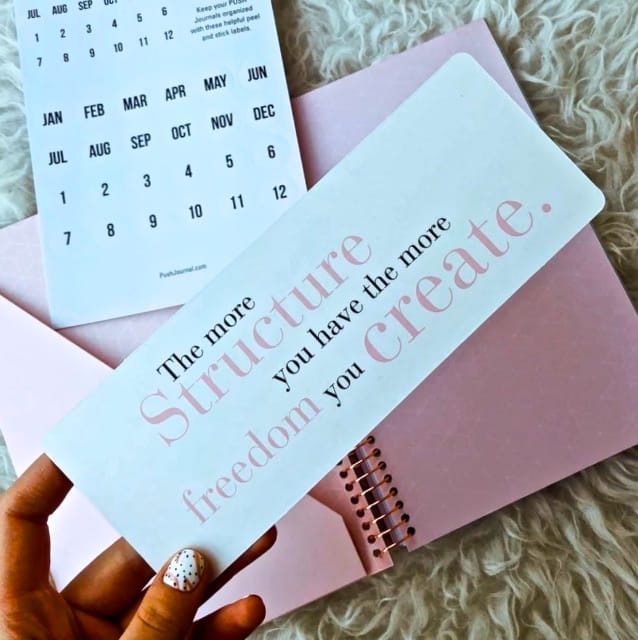 JUL AUG SEP
1 2 3 4 5 6
7 8 9 10 11 12
Keep your PUSH
Journals organized
with these helpful peel
and stick labels.
JAN FEB MAR APR MAY JUN
JUL AUG SEP OCT NOV DEC
1 2 3 4 5 6
7 8 9 10 11 12
PushJournal.com
The more
Structure
you have the more
freedom you create.